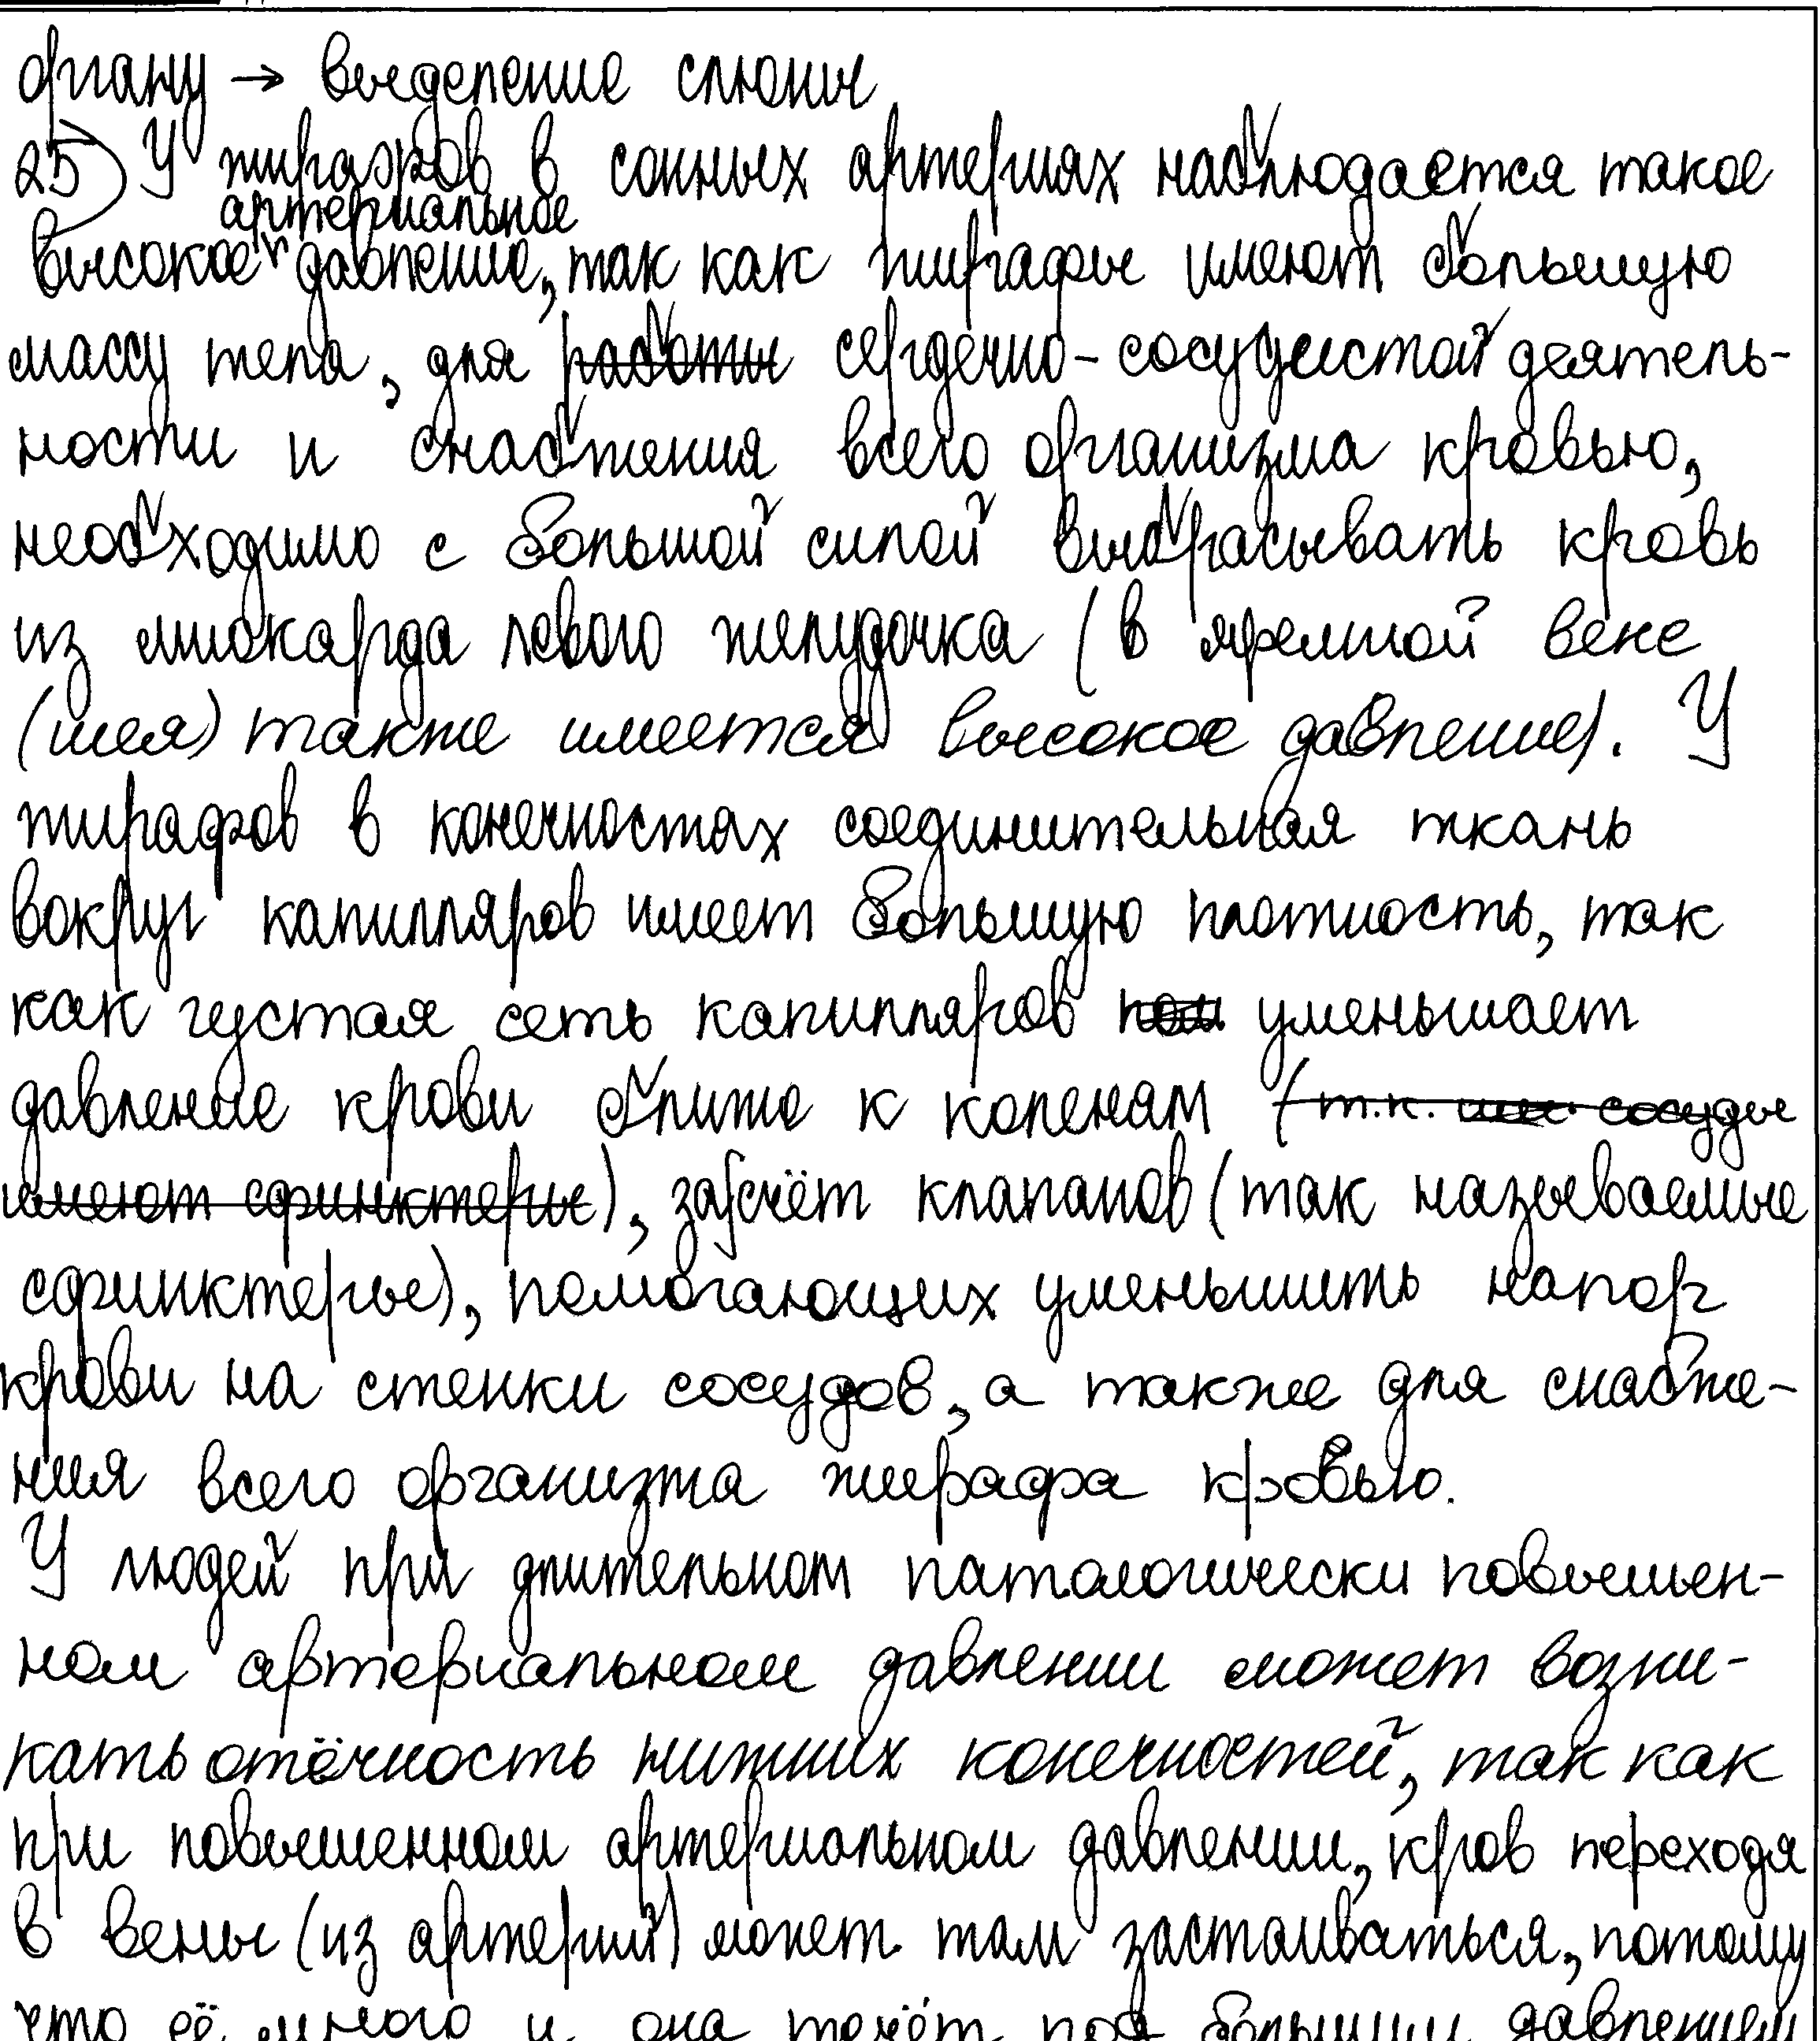 органу → выделение слюны
25) У жирафов в сонных артериях наблюдается такое
артериальное
высокое давление, так как жирафы имеют большую
массу тела, для работы сердечно-сосудистой деятель-
ности и снабжения всего организма кровью,
необходимо с большой силой выбрасывать кровь
из миокарда левого желудочка (в яремной вене
(шея) также имеется высокое давление). У
жирафов в конечностях соединительная ткань
вокруг капилляров имеет большую плотность, так
как густая сеть капилляров уменьшает
давление крови ближе к коленям (т.к. сосуды
имеют сфинктеры), засчёт клапанов (так называемые
сфинктеры), помогающих уменьшить напор
крови на стенки сосудов, а также для снабже-
ния всего организма жирафа кровью.
У людей при длительном патологически повышен-
ном артериальном давлении может возни-
кать отёчность нижних конечностей, так как
при повышенном артериальном давлении, кров переходя
в вены (из артерий) может там застаиваться, потому
что её много и она течёт под большим давлением